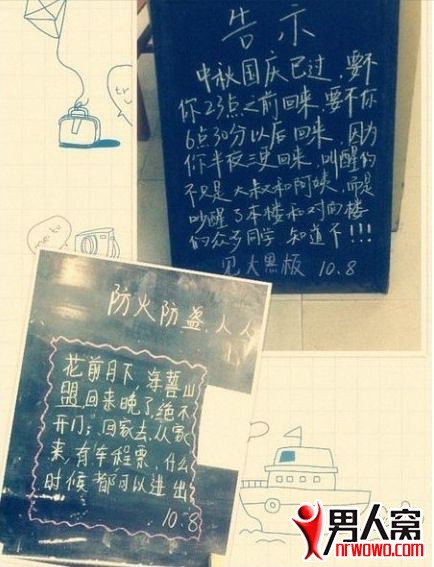 告示
中秋国庆已过,要不
你23点之前回来,要不你
6点30分以后回来,因为
你半夜三更回来,叫醒的
不只是大叔和阿姨,而是
吵醒了本楼和对面楼
的众多同学 知道不!!!
见大黑板 10.8
防火防盗,人人
花前月下,海誓山
盟回来晚了,绝不
开门;回家去,从家
来,有车程票,什么
时候都可以进出
10.8
男人窝
nrwowo.com